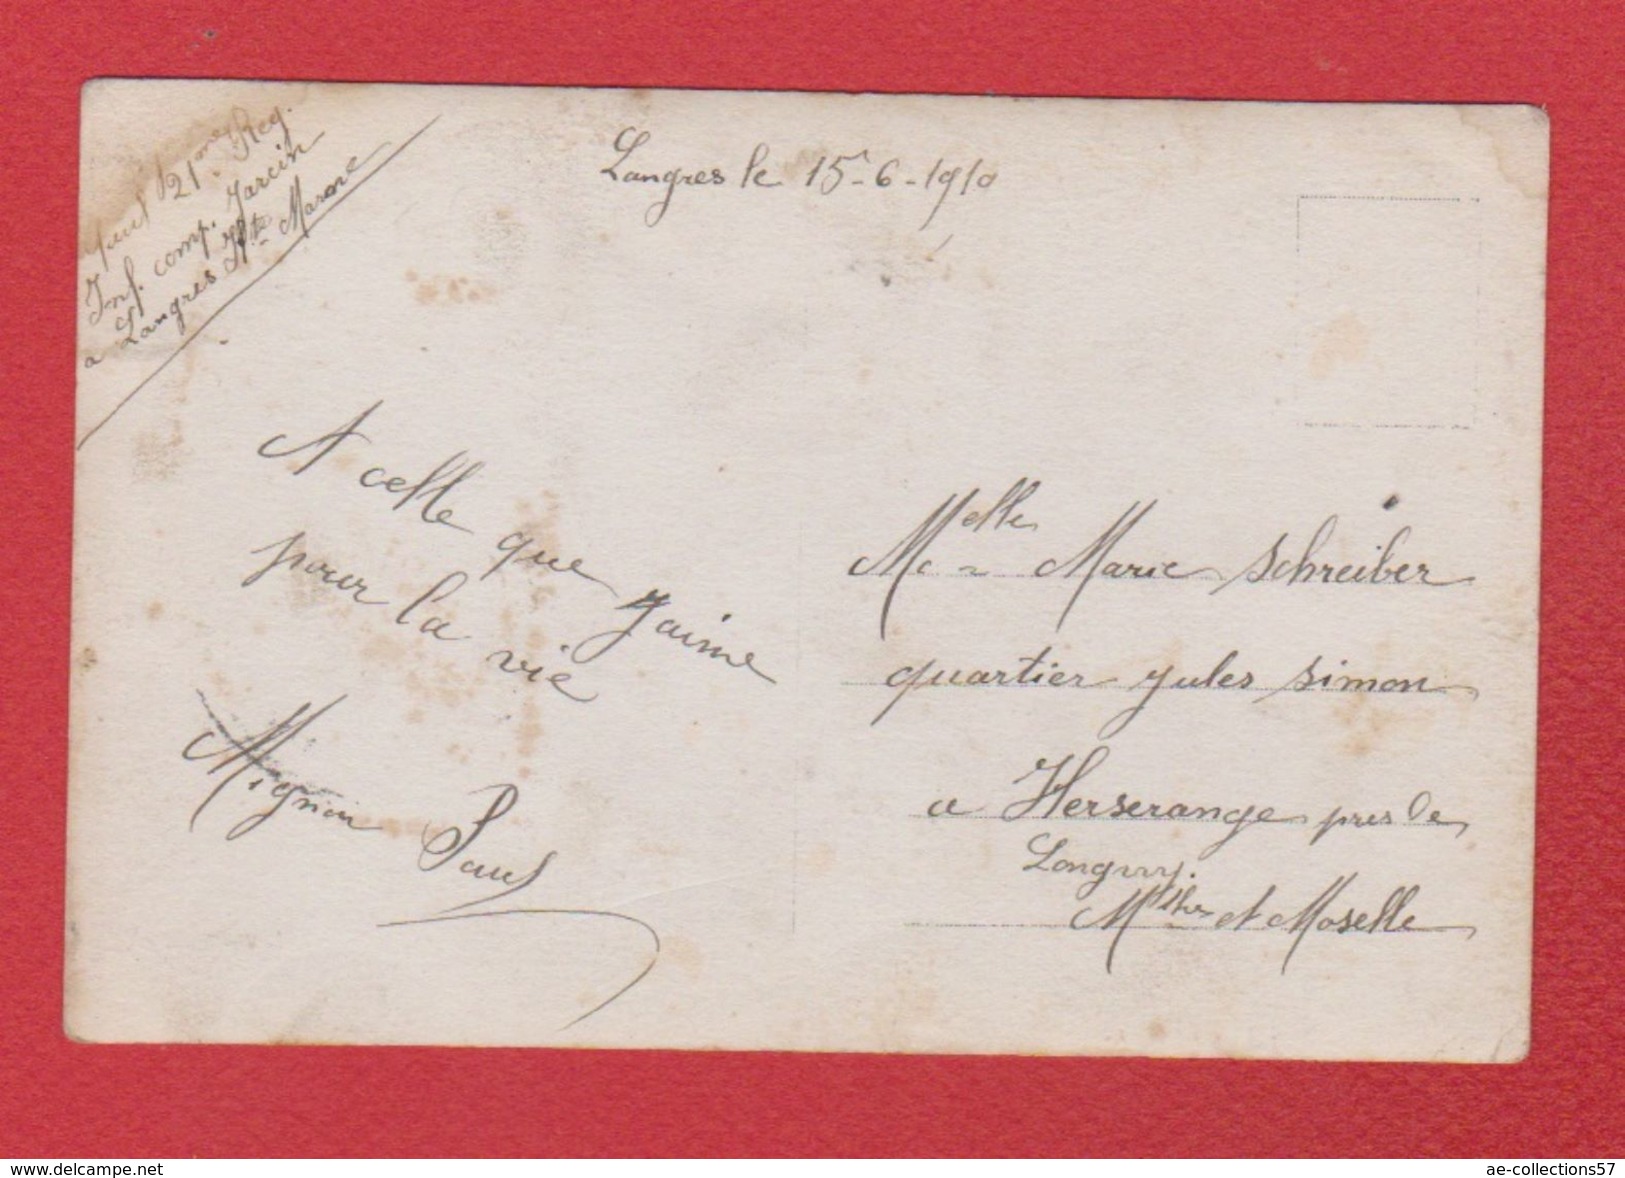 Paul 21me Reg.
Inf. comp.
a Langres Hte Marne
Langres le 15-6-1910
A celle que J'aime
pour la vie
Mignon Paul
Melle Marie Schreiber
quartier Jules Simon
a Herserange pres de
Longwy.
Mthe et Moselle
www.delcampe.net
ae-collections57